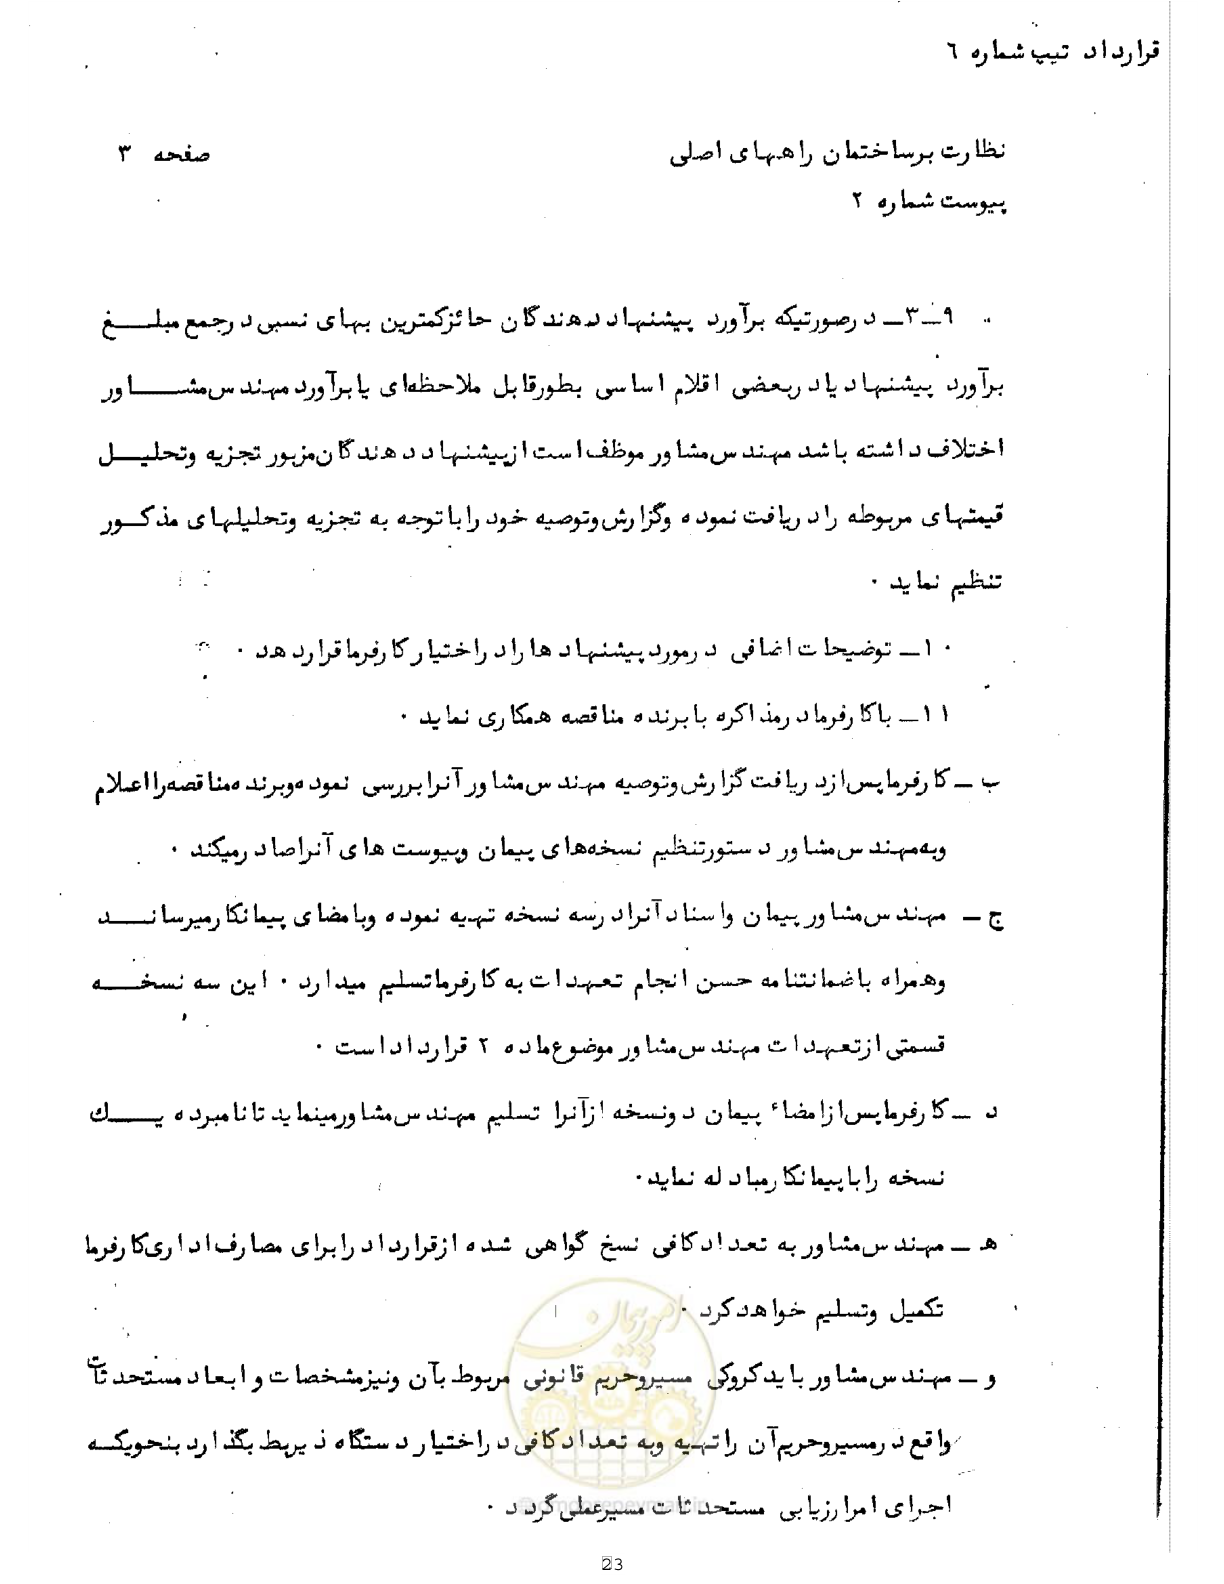 قرارداد تیپ شماره ٦
نظارت برساختمان راههای اصلی
صفحه ۳
پیوست شماره ۲
۹ـ۳ـ درصورتیکه برآورد پیشنهاددهندگان حائزکمترین بهای نسبی درجمع مبلـــغ
برآورد پیشنهاد یا دربعضی اقلام اساسی بطورقابل ملاحظه‌ای بابرآورد مهندس‌مشـــاور
اختلاف داشته باشد مهندس‌مشاور موظف است ازپیشنهاددهندگان‌مزبور تجزیه وتحلیــل
قیمتهای مربوطه را دریافت نموده وگزارش‌وتوصیه خود را باتوجه به تجزیه وتحلیلهای مذکــور
تنظیم نماید ۰
۱۰ـ توضیحات اضافی درمورد پیشنهادها را دراختیارکارفرما قراردهد ۰
۱۱ـ باکارفرما درمذاکره بابرنده مناقصه همکاری نماید ۰
ب ـ کارفرما پس‌ازدریافت گزارش‌وتوصیه مهندس‌مشاور آنرا بررسی نموده‌وبرنده‌مناقصه‌را اعلام
وبه‌مهندس‌مشاور دستورتنظیم نسخه‌های پیمان وپیوست های آنراصادرمیکند ۰
ج ـ مهندس‌مشاور پیمان واسناد آنرا درسه نسخه تهیه نموده وبامضای پیمانکار میرسانـــد
وهمراه باضمانتنامه حسن انجام تعهدات به کارفرما تسلیم میدارد ۰ این سه نسخـــه
قسمتی ازتعهدات مهندس‌مشاور موضوع‌ماده ۲ قرارداد است ۰
د ـ کارفرما پس‌ازامضاء پیمان دونسخه ازآنرا تسلیم مهندس‌مشاورمینماید تا نامبرده یـــك
نسخه را باپیمانکار مبادله نماید۰
هـ ـ مهندس‌مشاور به تعداد کافی نسخ گواهی شده ازقرارداد را برای مصارف‌اداری‌کارفرما
تکمیل وتسلیم خواهدکرد ۰
و ـ مهندس‌مشاور باید کروکی مسیروحریم قانونی مربوط بآن ونیزمشخصات و ابعاد مستحدثات
واقع درمسیروحریم‌آن را تهیه وبه تعداد کافی دراختیار دستگاه ذیربط بگذارد بنحویکــه
اجرای امر ارزیابی مستحدثات مسیرعملی گردد ۰
امور پیمان
23